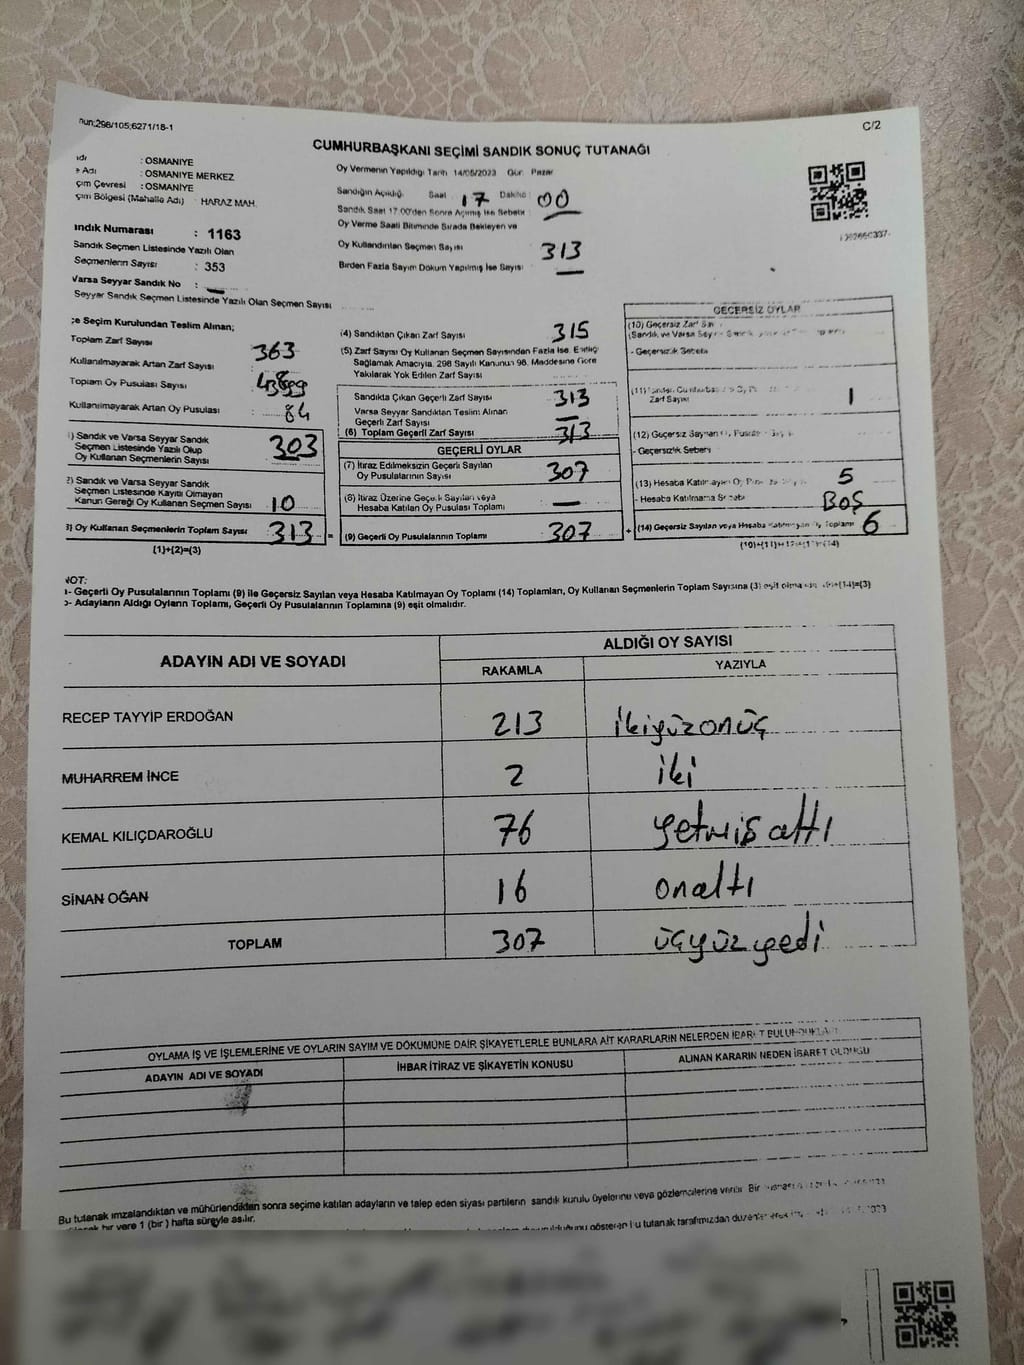 nun:298/105;6271/18-1
C/2
CUMHURBAŞKANI SEÇİMİ SANDIK SONUÇ TUTANAĞI
: OSMANIYE
Adı : OSMANIYE MERKEZ
çim Çevresi : OSMANIYE
çim Bölgesi (Mahalle Adı) HARAZ MAH.
ındık Numarası : 1163
Sandık Seçmen Listesinde Yazılı Olan
Seçmenlerin Sayısı : 353
Varsa Seyyar Sandık No : —
Seyyar Sandık Seçmen Listesinde Yazılı Olan Seçmen Sayısı
Oy Vermenin Yapıldığı Tarih 14/05/2023 Gün: Pazar
Sandığın Açıldığı Saat 17 Dakika : 00
Sandık Saat 17.00'den Sonra Açılmış İse Sebebi : —
Oy Verme Saati Bitiminde Sırada Bekleyen ve
Oy Kullandırılan Seçmen Sayısı 313
Birden Fazla Sayım Döküm Yapılmış İse Sayısı —
;e Seçim Kurulundan Teslim Alınan;
Toplam Zarf Sayısı : 363
Kullanılmayarak Artan Zarf Sayısı
Toplam Oy Pusulası Sayısı
Kullanılmayarak Artan Oy Pusulası : 84
1) Sandık ve Varsa Seyyar Sandık
Seçmen Listesinde Yazılı Olup
Oy Kullanan Seçmenlerin Sayısı 303
2) Sandık ve Varsa Seyyar Sandık
Seçmen Listesinde Kayıtlı Olmayan
Kanun Gereği Oy Kullanan Seçmen Sayısı 10
3) Oy Kullanan Seçmenlerin Toplam Sayısı 313 =
(1)+(2)=(3)
(4) Sandıktan Çıkan Zarf Sayısı 315
(5) Zarf Sayısı Oy Kullanan Seçmen Sayısından Fazla İse, Eşitliği
Sağlamak Amacıyla, 298 Sayılı Kanunun 98. Maddesine Göre
Yakılarak Yok Edilen Zarf Sayısı
Sandıkta Çıkan Geçerli Zarf Sayısı 313
Varsa Seyyar Sandıktan Teslim Alınan
Geçerli Zarf Sayısı —
(6) Toplam Geçerli Zarf Sayısı 313
GEÇERLİ OYLAR
(7) İtiraz Edilmeksizin Geçerli Sayılan
Oy Pusulalarının Sayısı 307
(8) İtiraz Üzerine Geçerli Sayılan veya
Hesaba Katılan Oy Pusulası Toplamı —
(9) Geçerli Oy Pusulalarının Toplamı 307 +
GEÇERSİZ OYLAR
(10) Geçersiz Zarf
(Sandık ve Varsa
- Geçersizlik Sebebi
(11)
Zarf Sayısı 1
(12) Geçersiz Sayılan
- Geçersizlik Sebebi
(13) Hesaba Katılmayan Oy 5
- Hesaba Katılmama Sebebi BOŞ
(14) Geçersiz Sayılan veya Hesaba Katılmayan Oy Toplamı 6
NOT:
a- Geçerli Oy Pusulalarının Toplamı (9) ile Geçersiz Sayılan veya Hesaba Katılmayan Oy Toplamı (14) Toplamları, Oy Kullanan Seçmenlerin Toplam Sayısına (3) eşit olmalıdır.
b- Adayların Aldığı Oyların Toplamı, Geçerli Oy Pusulalarının Toplamına (9) eşit olmalıdır.
ADAYIN ADI VE SOYADI
ALDIĞI OY SAYISI
RAKAMLA YAZIYLA
RECEP TAYYİP ERDOĞAN 213 ikiyüzonüç
MUHARREM İNCE 2 iki
KEMAL KILIÇDAROĞLU 76 yetmiş altı
SİNAN OĞAN 16 onaltı
TOPLAM 307 üçyüz yedi
OYLAMA İŞ VE İŞLEMLERİNE VE OYLARIN SAYIM VE DÖKÜMÜNE DAİR ŞİKAYETLERLE BUNLARA AİT KARARLARIN NELERDEN İBARET BULUNDUKLARI
ADAYIN ADI VE SOYADI
İHBAR İTİRAZ VE ŞİKAYETİN KONUSU
ALINAN KARARIN NEDEN İBARET OLDUĞU
Bu tutanak imzalandıktan ve mühürlendikten sonra seçime katılan adayların ve talep eden siyasi partilerin sandık kurulu üyelerine veya gözlemcilerine verilir. Bir
bir yere 1 (bir) hafta süreyle asılır.
gösteren bu tutanak tarafımızdan